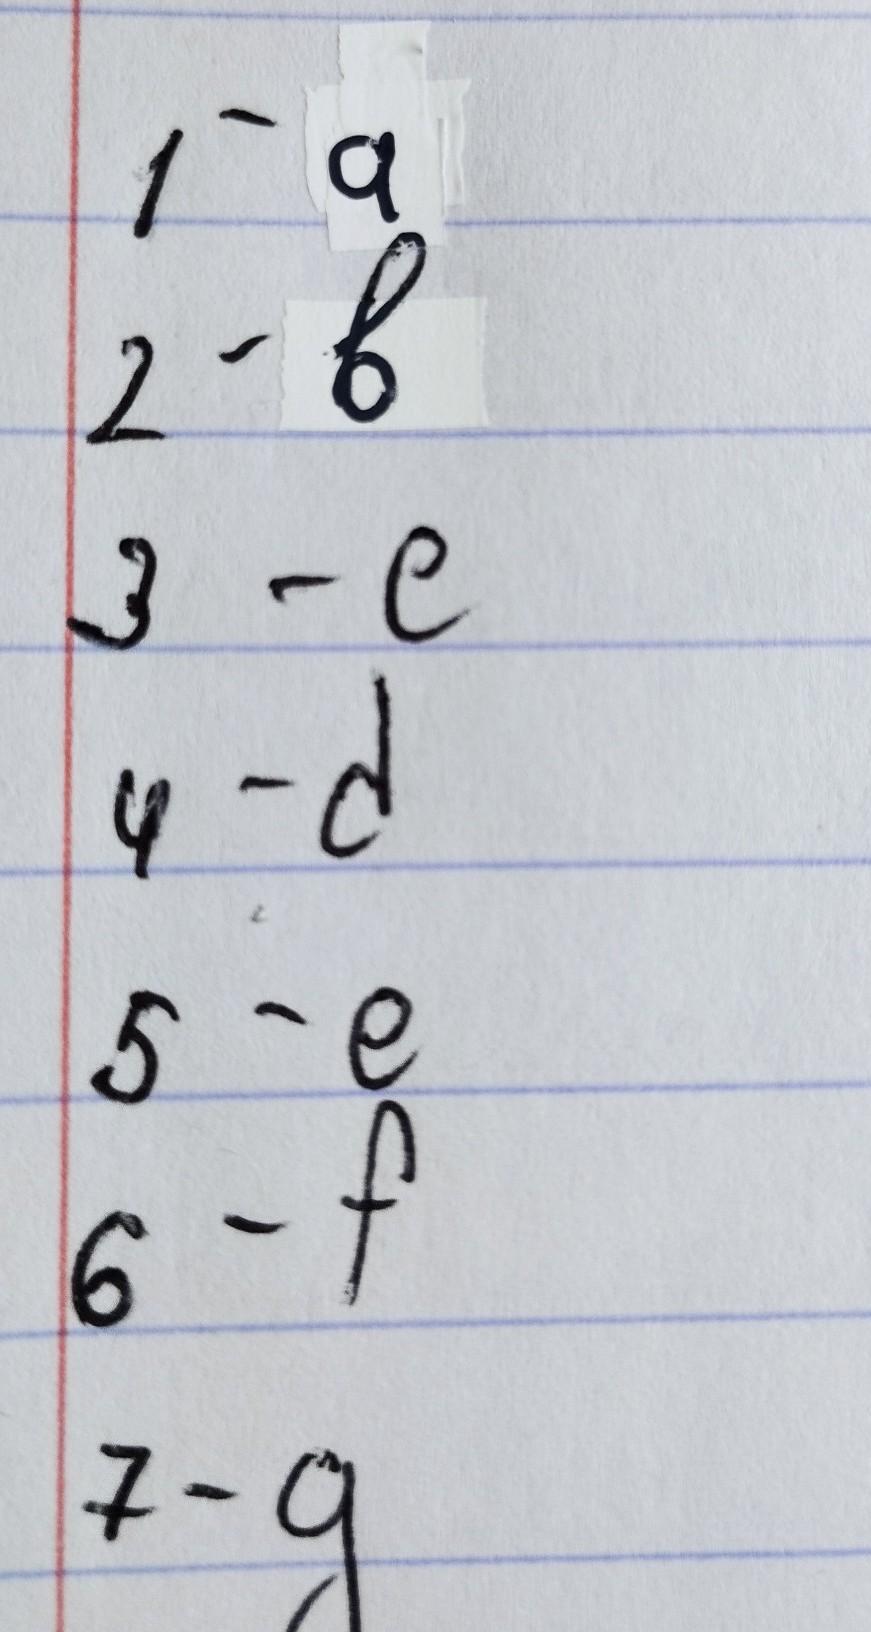 1 - a
2 - b
3 - e
4 - d
5 - e
6 - f
7 - g